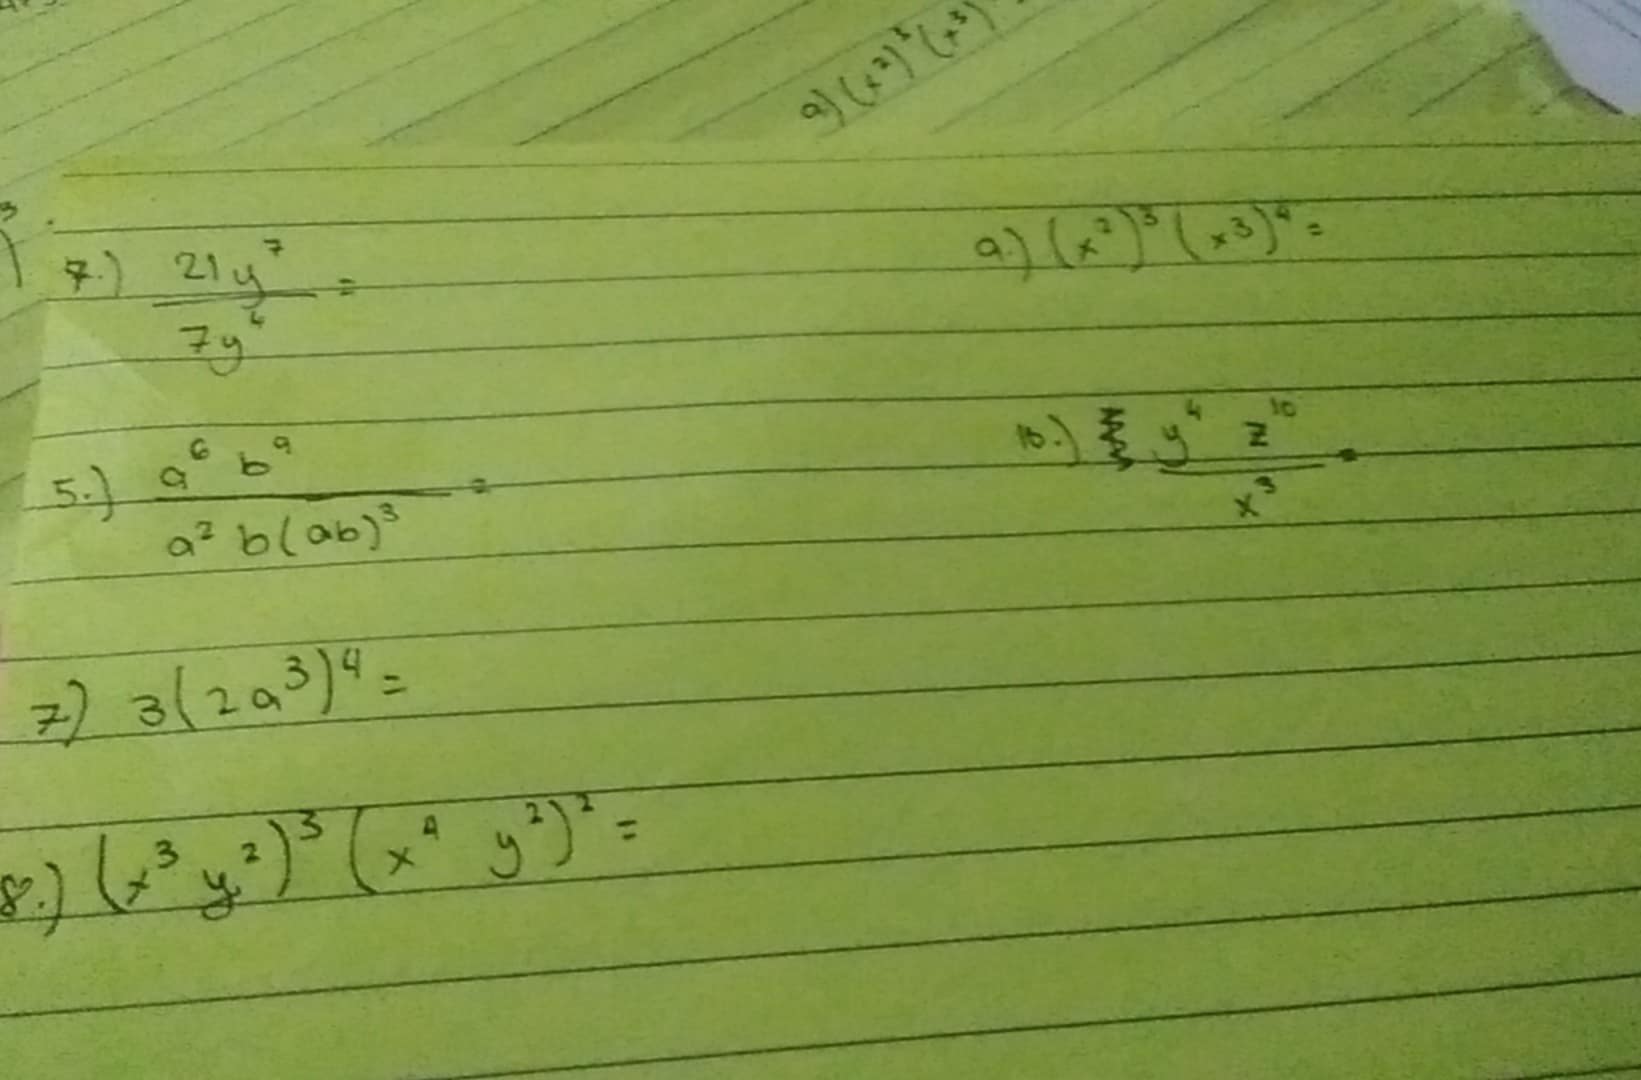 a) (x²)³ (x³)
7.) 21y⁷ / 7y⁴ =
a.) (x²)³ (x³)⁴ =
5.) a⁶ b⁹ / a² b(ab)³ =
10.) y⁴ z¹⁰ / x³ =
7) 3(2a³)⁴ =
8.) (x³ y²)³ (x⁴ y²)² =